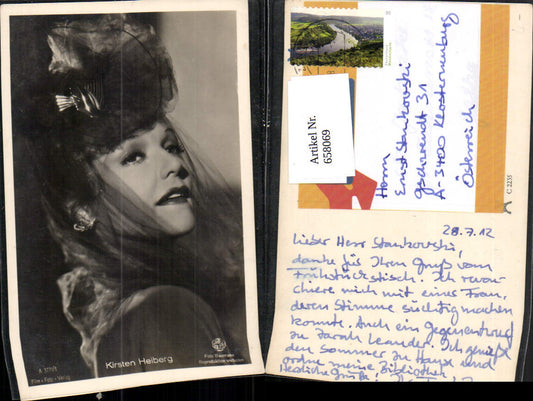 Kirsten Heiberg
Foto Baumann
Reproduktion verboten
A 3771/1
Film-Foto-Verlag
Artikel Nr.
658069
Herrn
Ernst Stankovski
31
A-3400 Klosterneuburg
Österreich
C 2235
28.7.12
Lieber Herr Stankovski,
danke für Ihren Gruß vom
Frühstückstisch. Ich revan-
chiere mich mit einer Frau,
deren Stimme süchtig machen
konnte. Auch ein Gegenentwurf
zu Zarah Leander. Ich genieß
den Sommer zu Hause und
ordne meine Bibliothek
Herzliche Grüße!